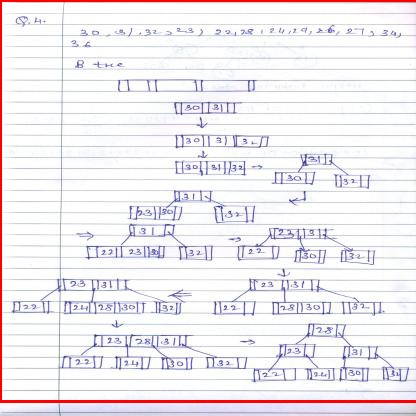 Q.4.
30, 31, 32, 23, 22, 28, 24, 29, 26, 27, 34,
36
B tree
30 31
30 31 32
30 31 32 31
30 32
31
23 30 32
31 23 31
22 23 30 32 22 30 32
23 31 23 31
22 24 28 30 32 22 28 30 32
23 28 31 28
22 24 30 32 23 31
22 24 30 32